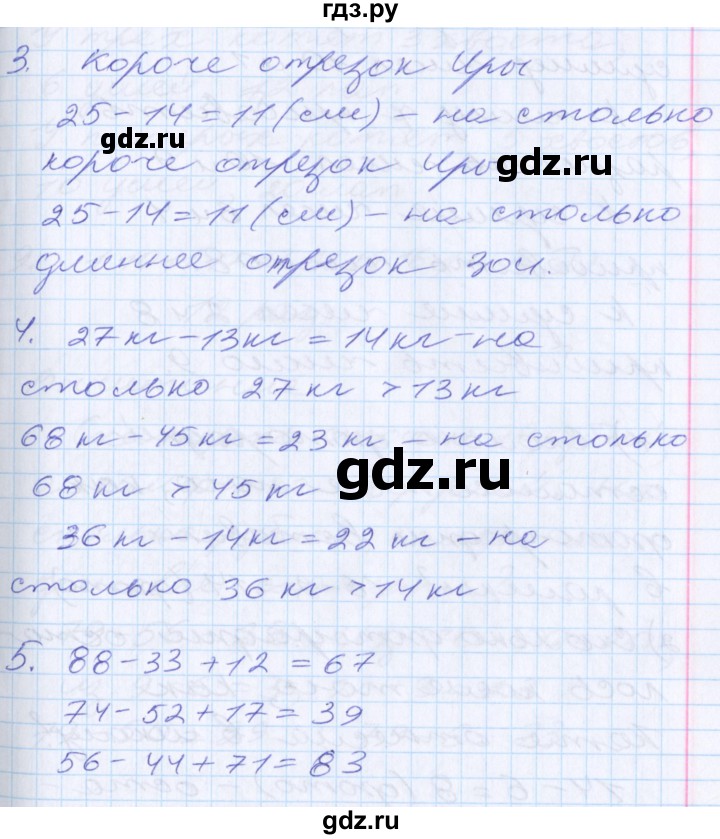 гдз.ру
3. Короче отрезок Иры
25-14=11(см) - на столько
короче отрезок Иры
gdz.ru
gdz.ru
25-14=11(см) - на столько
длиннее отрезок Зои.
4. 27кг-13кг=14кг-на
столько 27кг>13кг
68кг-45кг=23кг - на столько
68кг>45кг
gdz.ru
36кг-14кг=22кг-на
столько 36кг>14кг
5. 88-33+12=67
74-52+17=39
56-44+71=83
gdz.ru
gdz.ru